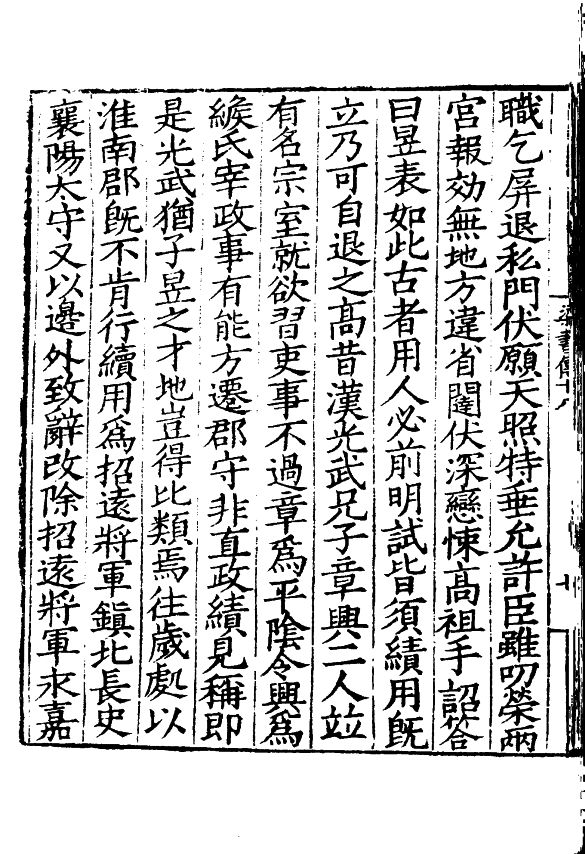 職乞屏退私門伏願天照特垂允許臣雖叨榮兩
宮報効無地方違省闥伏深戀悚高祖手詔答
曰昱表如此古者用人必前明試皆須績用旣
立乃可自退之高昔漢光武兄子章興二人竝
有名宗室就欲習吏事不過章爲平陰令興爲
緱氏宰政事有能方遷郡守非直政績見稱即
是光武猶子昱之才地豈得比類焉往歲處以
淮南郡旣不肯行續用爲招遠將軍鎭北長史
襄陽太守又以邊外致辭改除招遠將軍永嘉
梁書傳十八